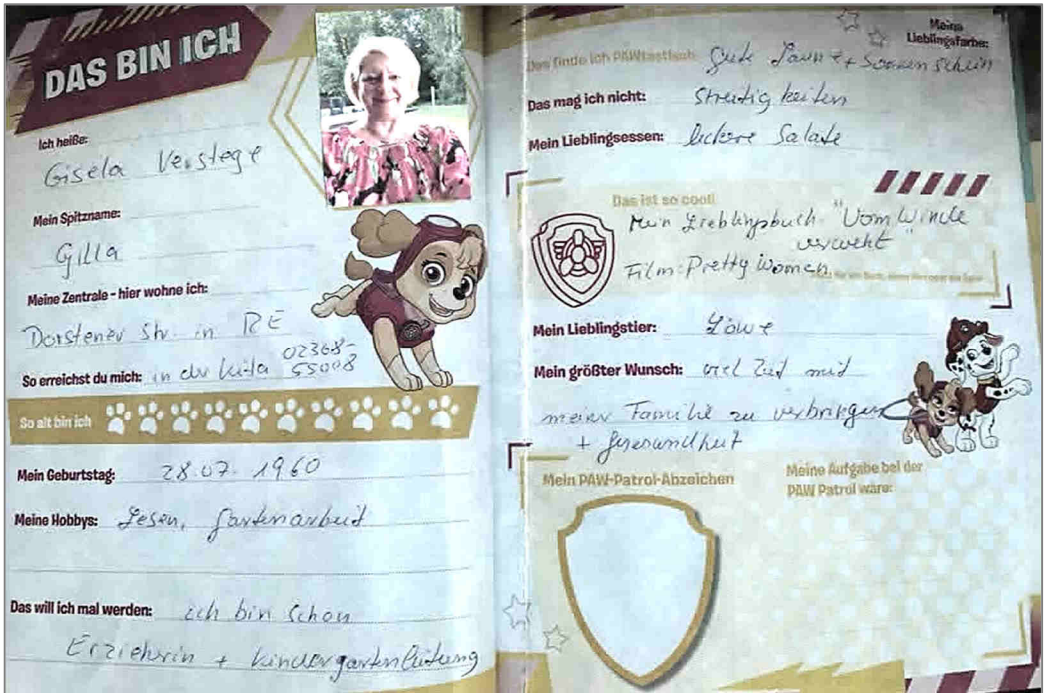 DAS BIN ICH
Ich heiße:
Gisela Verstege
Mein Spitzname:
Gilla
Meine Zentrale - hier wohne ich:
Dorstener Str. in RE
So erreichst du mich: in der Kita 02368-
55008
So alt bin ich
Mein Geburtstag: 28.07.1960
Meine Hobbys: Lesen, Gartenarbeit
Das will ich mal werden: ich bin schon
Erzieherin + Kindergartenleitung
Meine
Lieblingsfarbe:
Das finde ich PAWtastisch: gute Laune + Sonnenschein
Das mag ich nicht: Streitigkeiten
Mein Lieblingsessen: leckere Salate
Das ist so cool!
Mein Lieblingsbuch "Vom Winde
verweht"
Film: Pretty Women
Mein Lieblingstier: Löwe
Mein größter Wunsch: viel Zeit mit
meiner Familie zu verbringen
+ Gesundheit
Mein PAW-Patrol-Abzeichen
Meine Aufgabe bei der
PAW Patrol wäre: